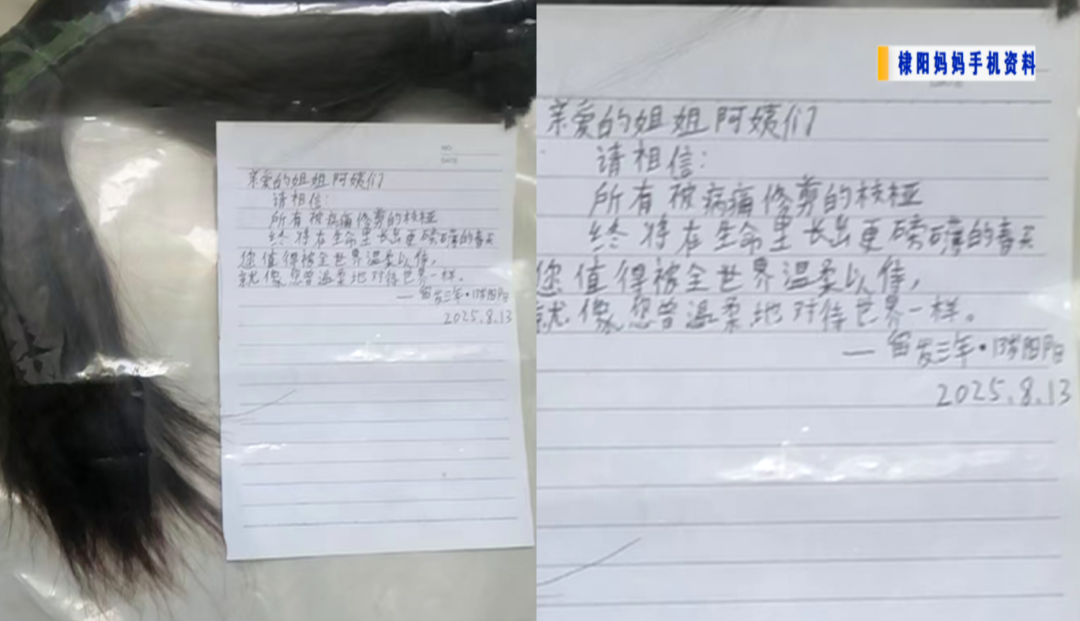 NO.
DATE
亲爱的姐姐阿姨们
请相信:
所有被病痛修剪的枝桠
终将在生命里长出更磅礴的春天
您值得被全世界温柔以待,
就像您曾温柔地对待世界一样。
——留发三年·13岁阳阳
2025.8.13
棣阳妈妈手机资料
亲爱的姐姐阿姨们
请相信:
所有被病痛修剪的枝桠
终将在生命里长出更磅礴的春天
您值得被全世界温柔以待,
就像您曾温柔地对待世界一样。
——留发三年·13岁阳阳
2025.8.13